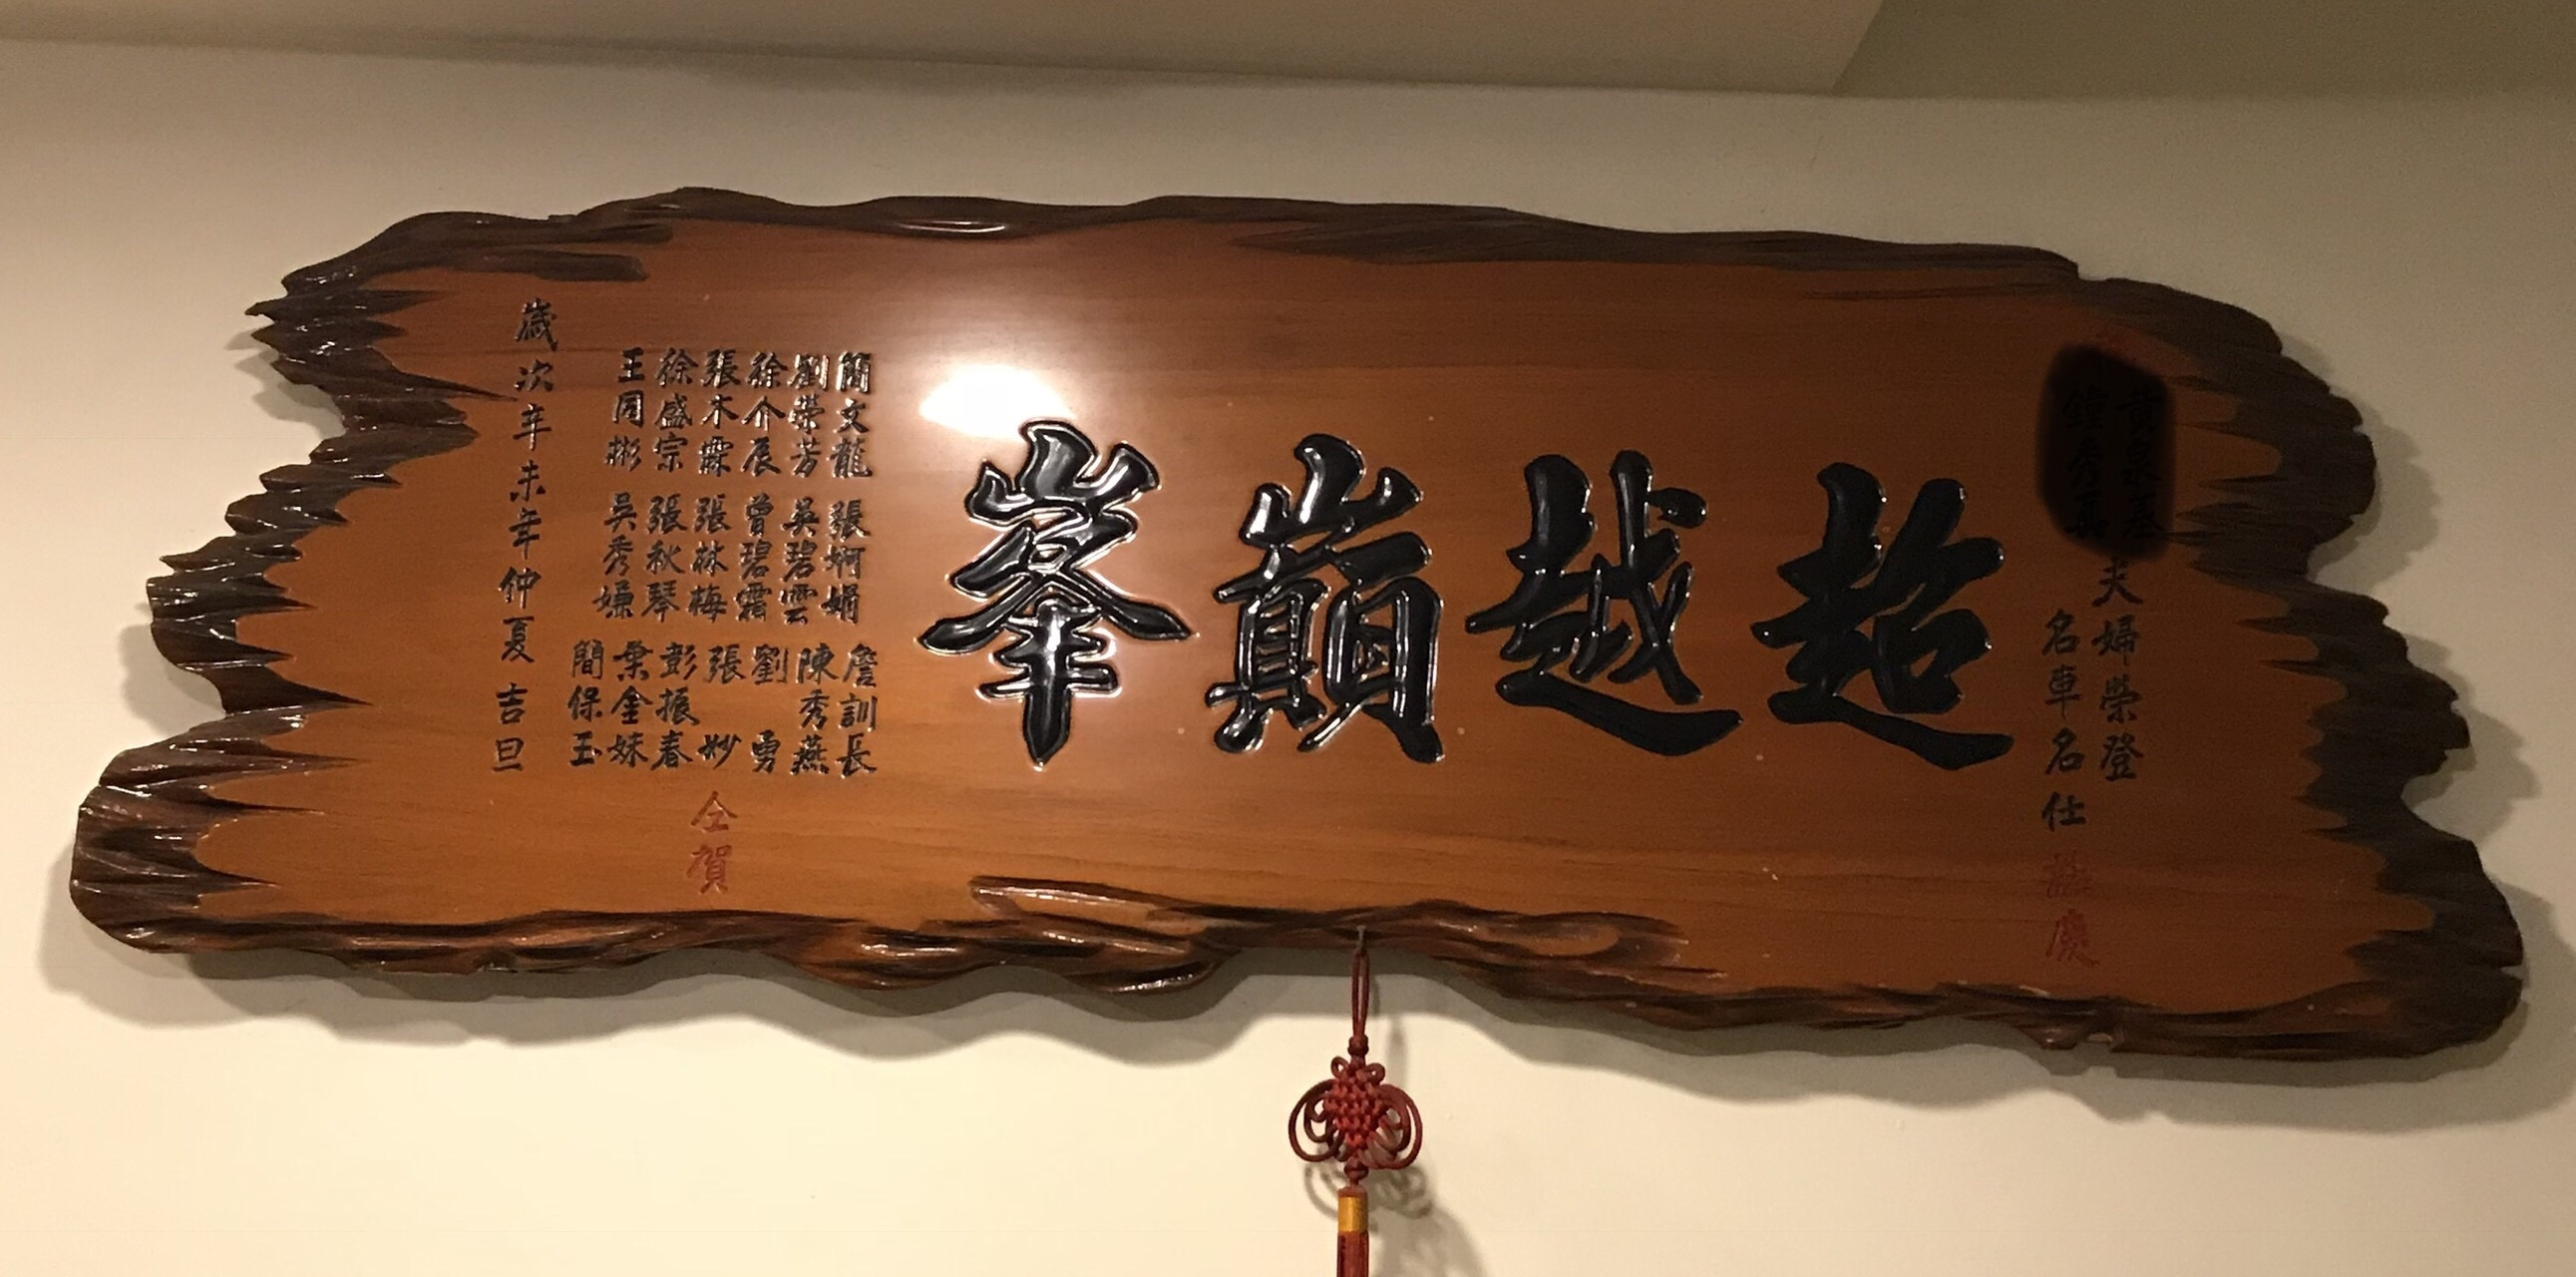 夫婦榮登
名車名仕
誌慶
超越巔峯
簡文龍 張婀娟 詹訓長
劉榮芳 吳碧雲 陳秀燕
徐介辰 曾碧霜 劉勇
張木霖 張林梅 張妙
徐盛宗 張秋琴 彭振春
王同彬 吳秀嫌 葉金妹
簡保玉
仝賀
歲次辛未年仲夏吉旦